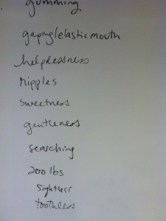 gumming
gaping/elastic mouth
helplessness
Nipples
sweetness
gentleness
searching
200 lbs
sightless
toothless